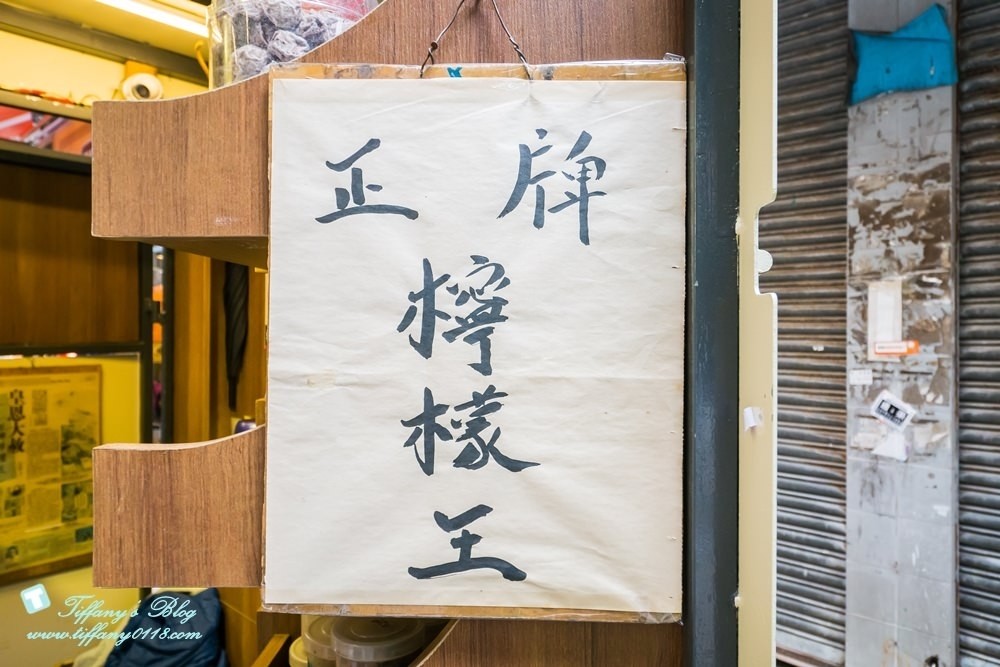 正 牌
檸
檬
王
Tiffany's Blog
www.tiffany0118.com